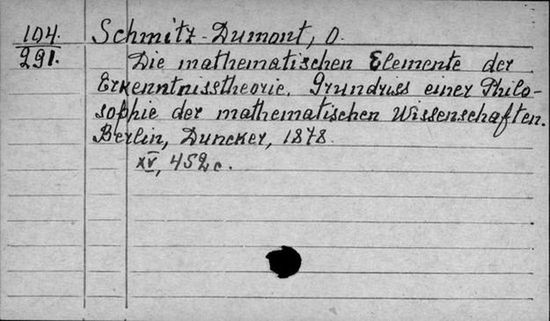 104. Schmitz-Dumont, O.
291. Die mathematischen Elemente der
Erkenntnisstheorie. Grundriss einer Philo-
sophie der mathematischen Wissenschaften.
Berlin, Duncker, 1878.
XV, 452 c.